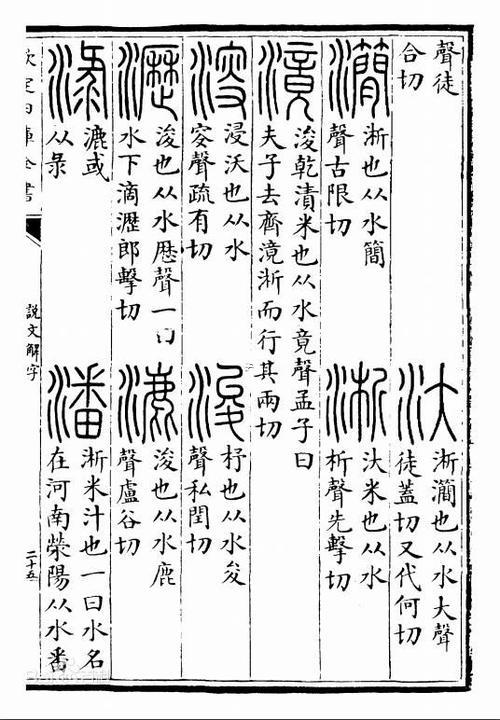 聲徒
合切
汏
淅㶕也从水大聲
徒蓋切又代何切
㶕
淅也从水簡
聲古限切
淅
汏米也从水
析聲先擊切
滰
浚乾漬米也从水竟聲孟子曰
夫子去齊滰淅而行其兩切
溲
浸沃也从水
叜聲疏有切
浚
杼也从水夋
聲私閏切
瀝
浚也从水歷聲一曰
水下滴瀝郎擊切
漉
浚也从水鹿
聲盧谷切
渌
漉或
从彔
潘
淅米汁也一曰水名
在河南滎陽从水番
欽定四庫全書
說文解字
二十五